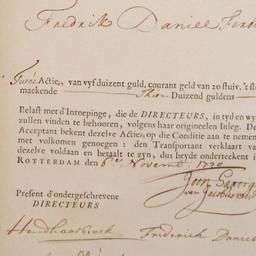 Fredrik Daniel
Twee Actien van vyf duizent guld. courant geld van 20 stuiv. 't st
makende Thien Duizend guldens
Belast met d'Introepinge, die de DIRECTEURS, in tyd en wy
zullen vinden te behooren, volgens haar origineelen Inleg. De
Acceptant bekent dezelve Actien, op die Conditie aan te nemen
met volkomen genoegen: den Transportant verklaart van
dezelve voldaan en betaalt te zyn, dus beyde onderteekent i
ROTTERDAM den 6 Novemb. 1720
Joon
van Jacobus
Present d'ondergeschrevene
DIRECTEURS
Frederick Danie